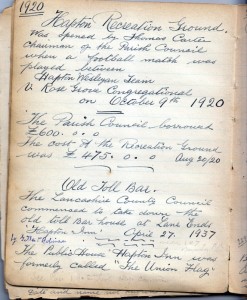 1920
Hapton Recreation Ground.
Was opened by Thomas Carter
chairman of the Parish Council
when a football match was
played between
Hapton Wesleyan Team
V. Rose Grove Congregational
on October 9th 1920
The Parish Council borrowed
£600. 0. 0
The cost of the Recreation Ground
was £475. 0. 0 Aug 20/20
Old Toll Bar.
The Lancashire County Council
commenced to take down the
old toll Bar house at Lane Ends
"Hapton Inn" April 27. 1937
The Public House "Hapton Inn was
formerly called "The Union Flag"